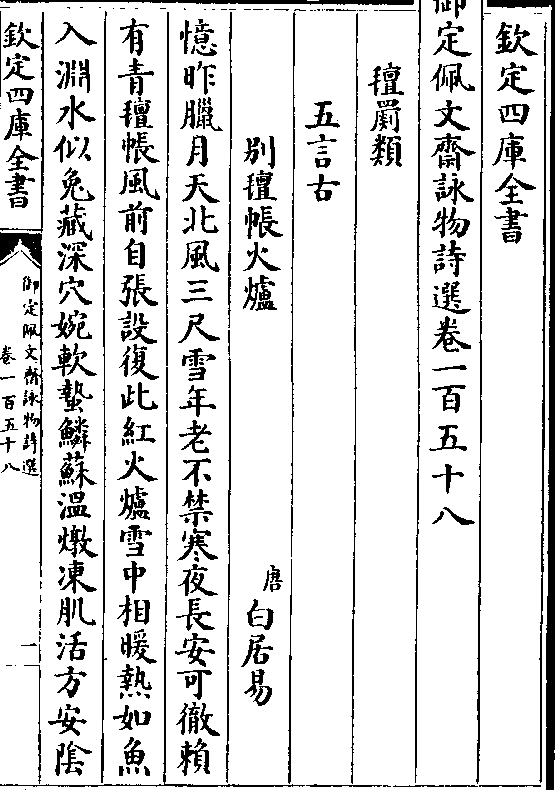 欽定四庫全書
御定佩文齋詠物詩選卷一百五十八
氊罽類
五言古
别氊帳火爐 唐 白居易
憶昨臘月天北風三尺雪年老不禁寒夜長安可徹賴
有青氊帳風前自張設復此紅火爐雪中相暖熱如魚
入淵水似兔藏深穴婉軟蟄鱗蘇溫燉凍肌活方安陰
欽定四庫全書
御定佩文齋詠物詩選
卷一百五十八
一